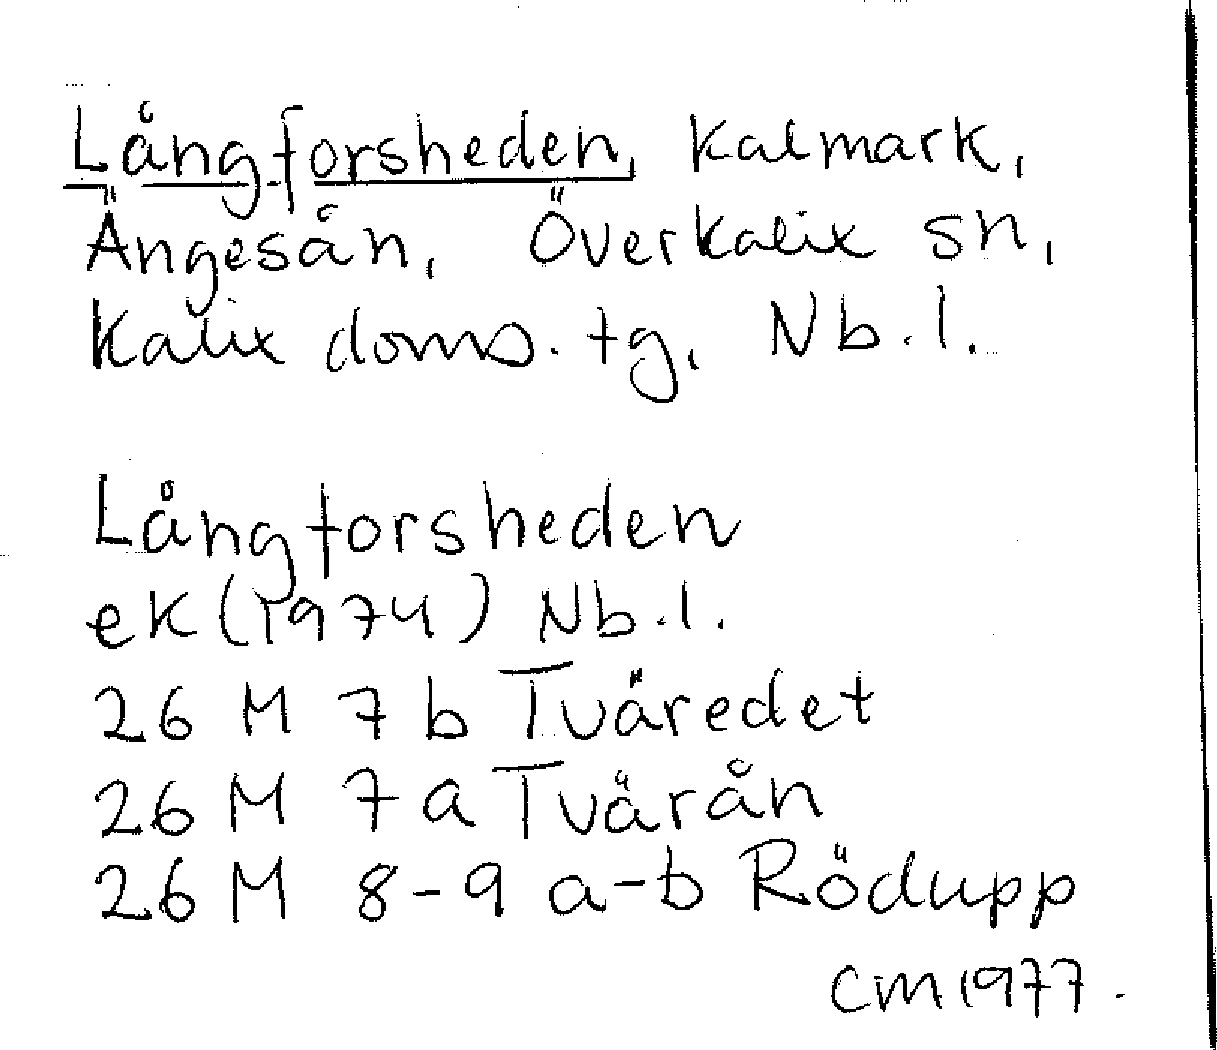 Långforsheden, Kalmark,
Ängesån, Överkalix sn,
Kalix doms. tg, Nb.l.
Långforsheden
ek (1974) Nb.l.
26 M 7 b Tväredet
26 M 7 a Tvärån
26 M 8-9 a-b Rödupp
CM 1977.